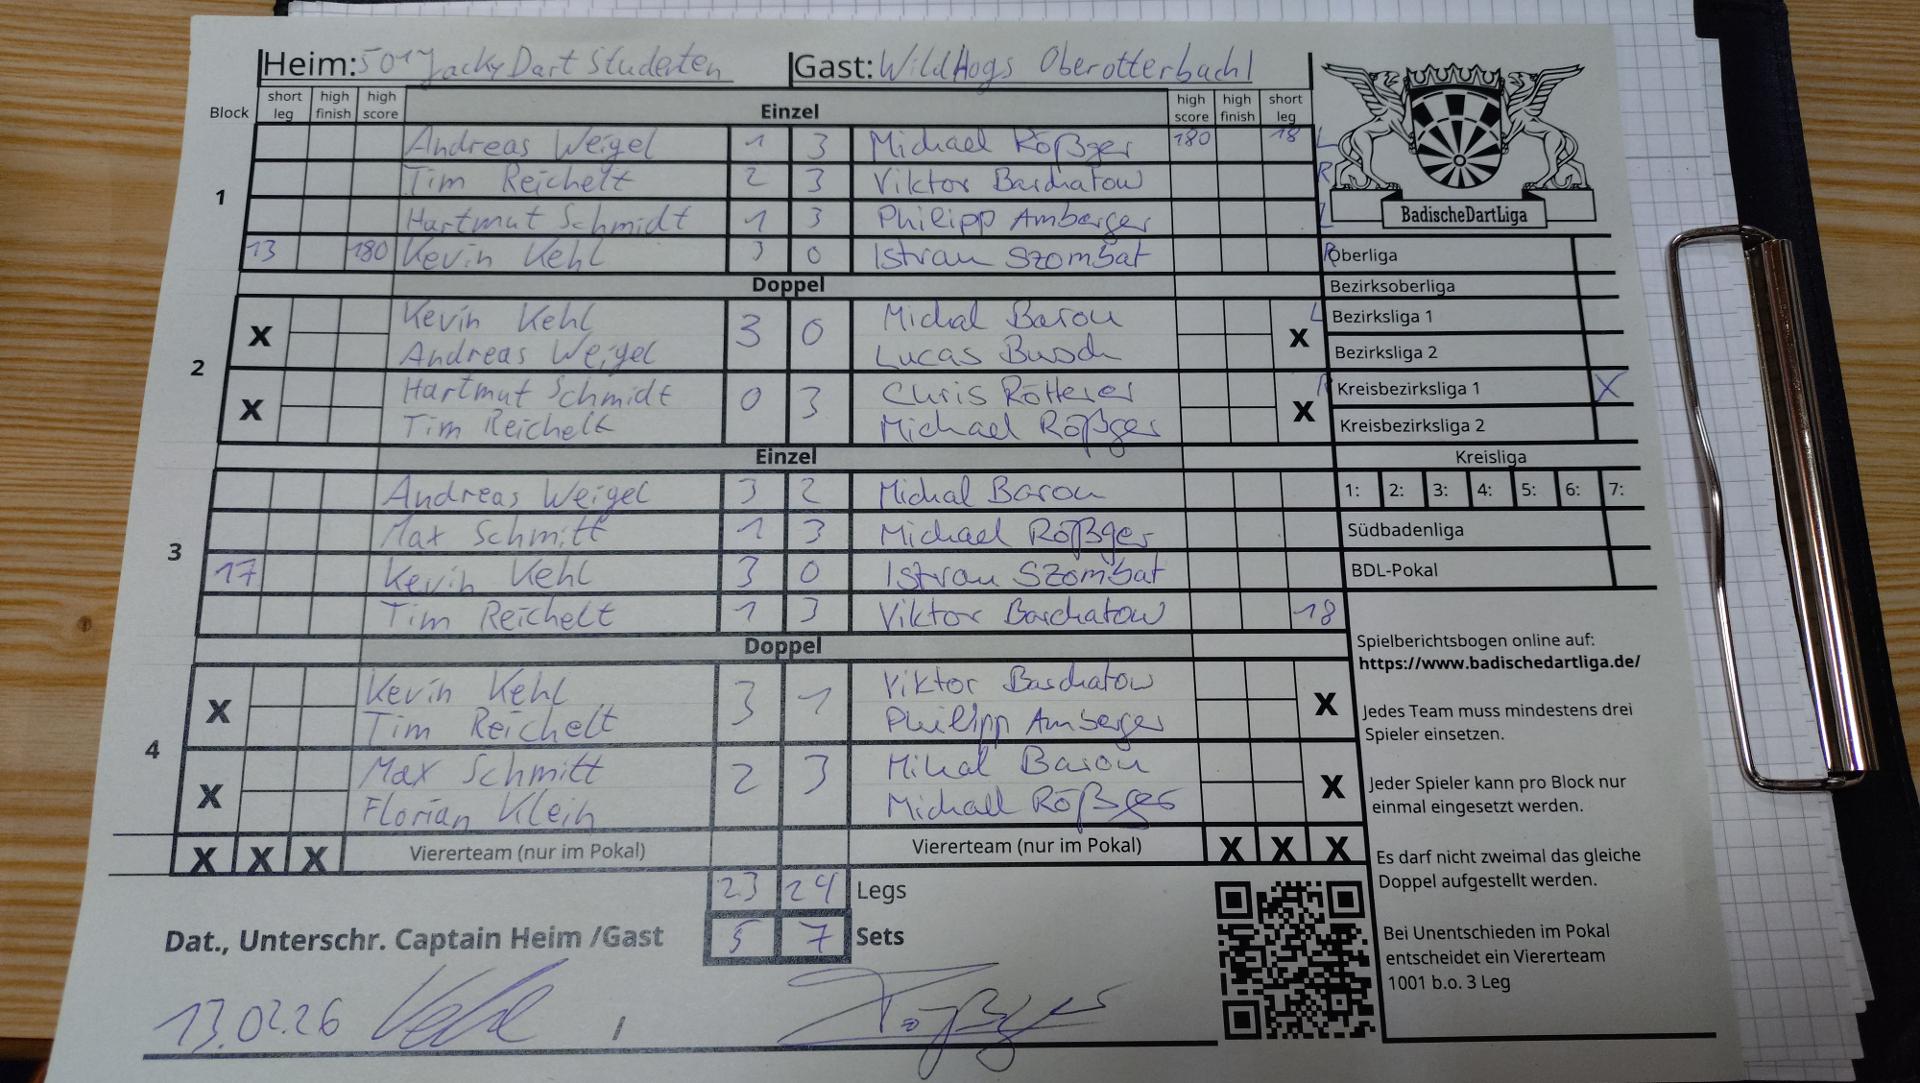 Heim: 501 Jacky Dart Studenten Gast: WildHogs Oberotterbach 1
Block short leg high finish high score Einzel high score high finish short leg
1
Andreas Weigel 1 3 Michael Rößger 180 18 L
Tim Reichelt 2 3 Viktor Baschatow R
Hartmut Schmidt 1 3 Philipp Amberger L
13 180 Kevin Kehl 3 0 Istvan Szombat R
Doppel
2
X Kevin Kehl 3 0 Michal Baron X L
Andreas Weigel Lucas Busch
X Hartmut Schmidt 0 3 Chris Rötterer X R
Tim Reichelt Michael Rößger
Einzel
3
Andreas Weigel 3 2 Michal Baron
Max Schmitt 1 3 Michael Rößger
17 Kevin Kehl 3 0 Istvan Szombat
Tim Reichelt 1 3 Viktor Baschatow 18
Doppel
4
X Kevin Kehl 3 1 Viktor Baschatow X
Tim Reichelt Philipp Amberger
X Max Schmitt 2 3 Mihal Baron X
Florian Klein Michael Rößger
X X X Viererteam (nur im Pokal) Viererteam (nur im Pokal) X X X
23 24 Legs
5 7 Sets
Dat., Unterschr. Captain Heim /Gast
13.02.26 Kehl / Rößger
BadischeDartLiga
Oberliga
Bezirksoberliga
Bezirksliga 1
Bezirksliga 2
Kreisbezirksliga 1 X
Kreisbezirksliga 2
Kreisliga
1: 2: 3: 4: 5: 6: 7:
Südbadenliga
BDL-Pokal
Spielberichtsbogen online auf:
https://www.badischedartliga.de/
Jedes Team muss mindestens drei
Spieler einsetzen.
Jeder Spieler kann pro Block nur
einmal eingesetzt werden.
Es darf nicht zweimal das gleiche
Doppel aufgestellt werden.
Bei Unentschieden im Pokal
entscheidet ein Viererteam
1001 b.o. 3 Leg